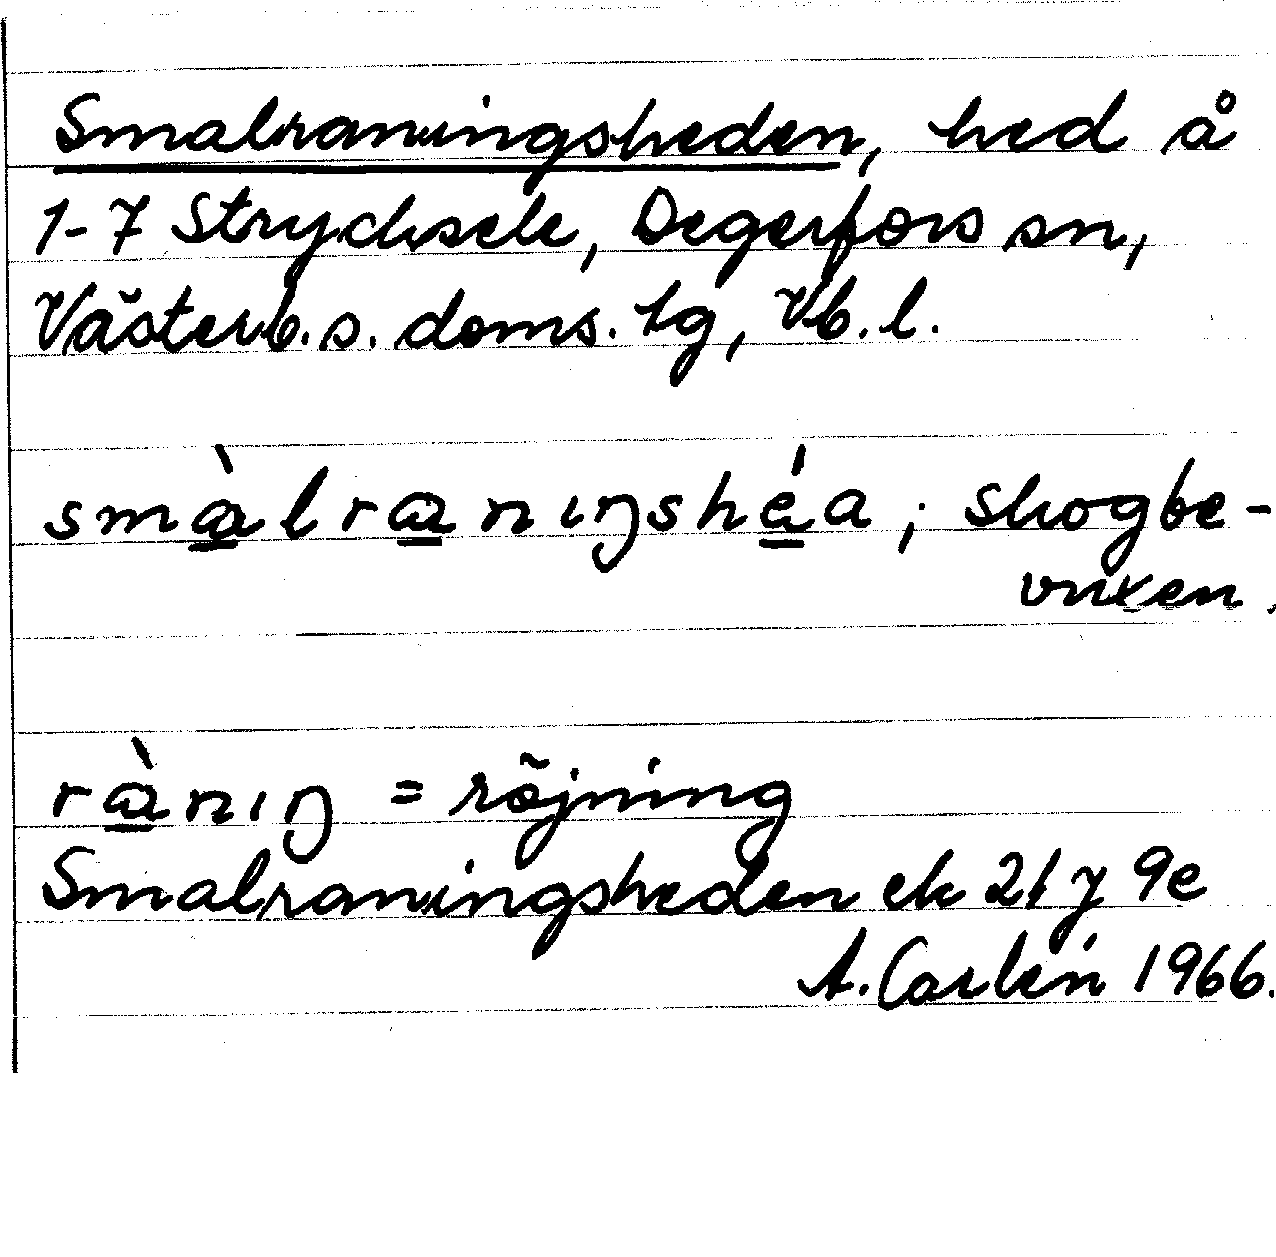 Smalraningsheden, hed å
1-7 Strycksele, Degerfors sn,
Västerb. s. doms. tg, Vb. l.
smàlranıŋshéa; skogbe-
vuxen.
rànıŋ = röjning
Smalraningsheden ek 21 J 9e
A. Carlén 1966.